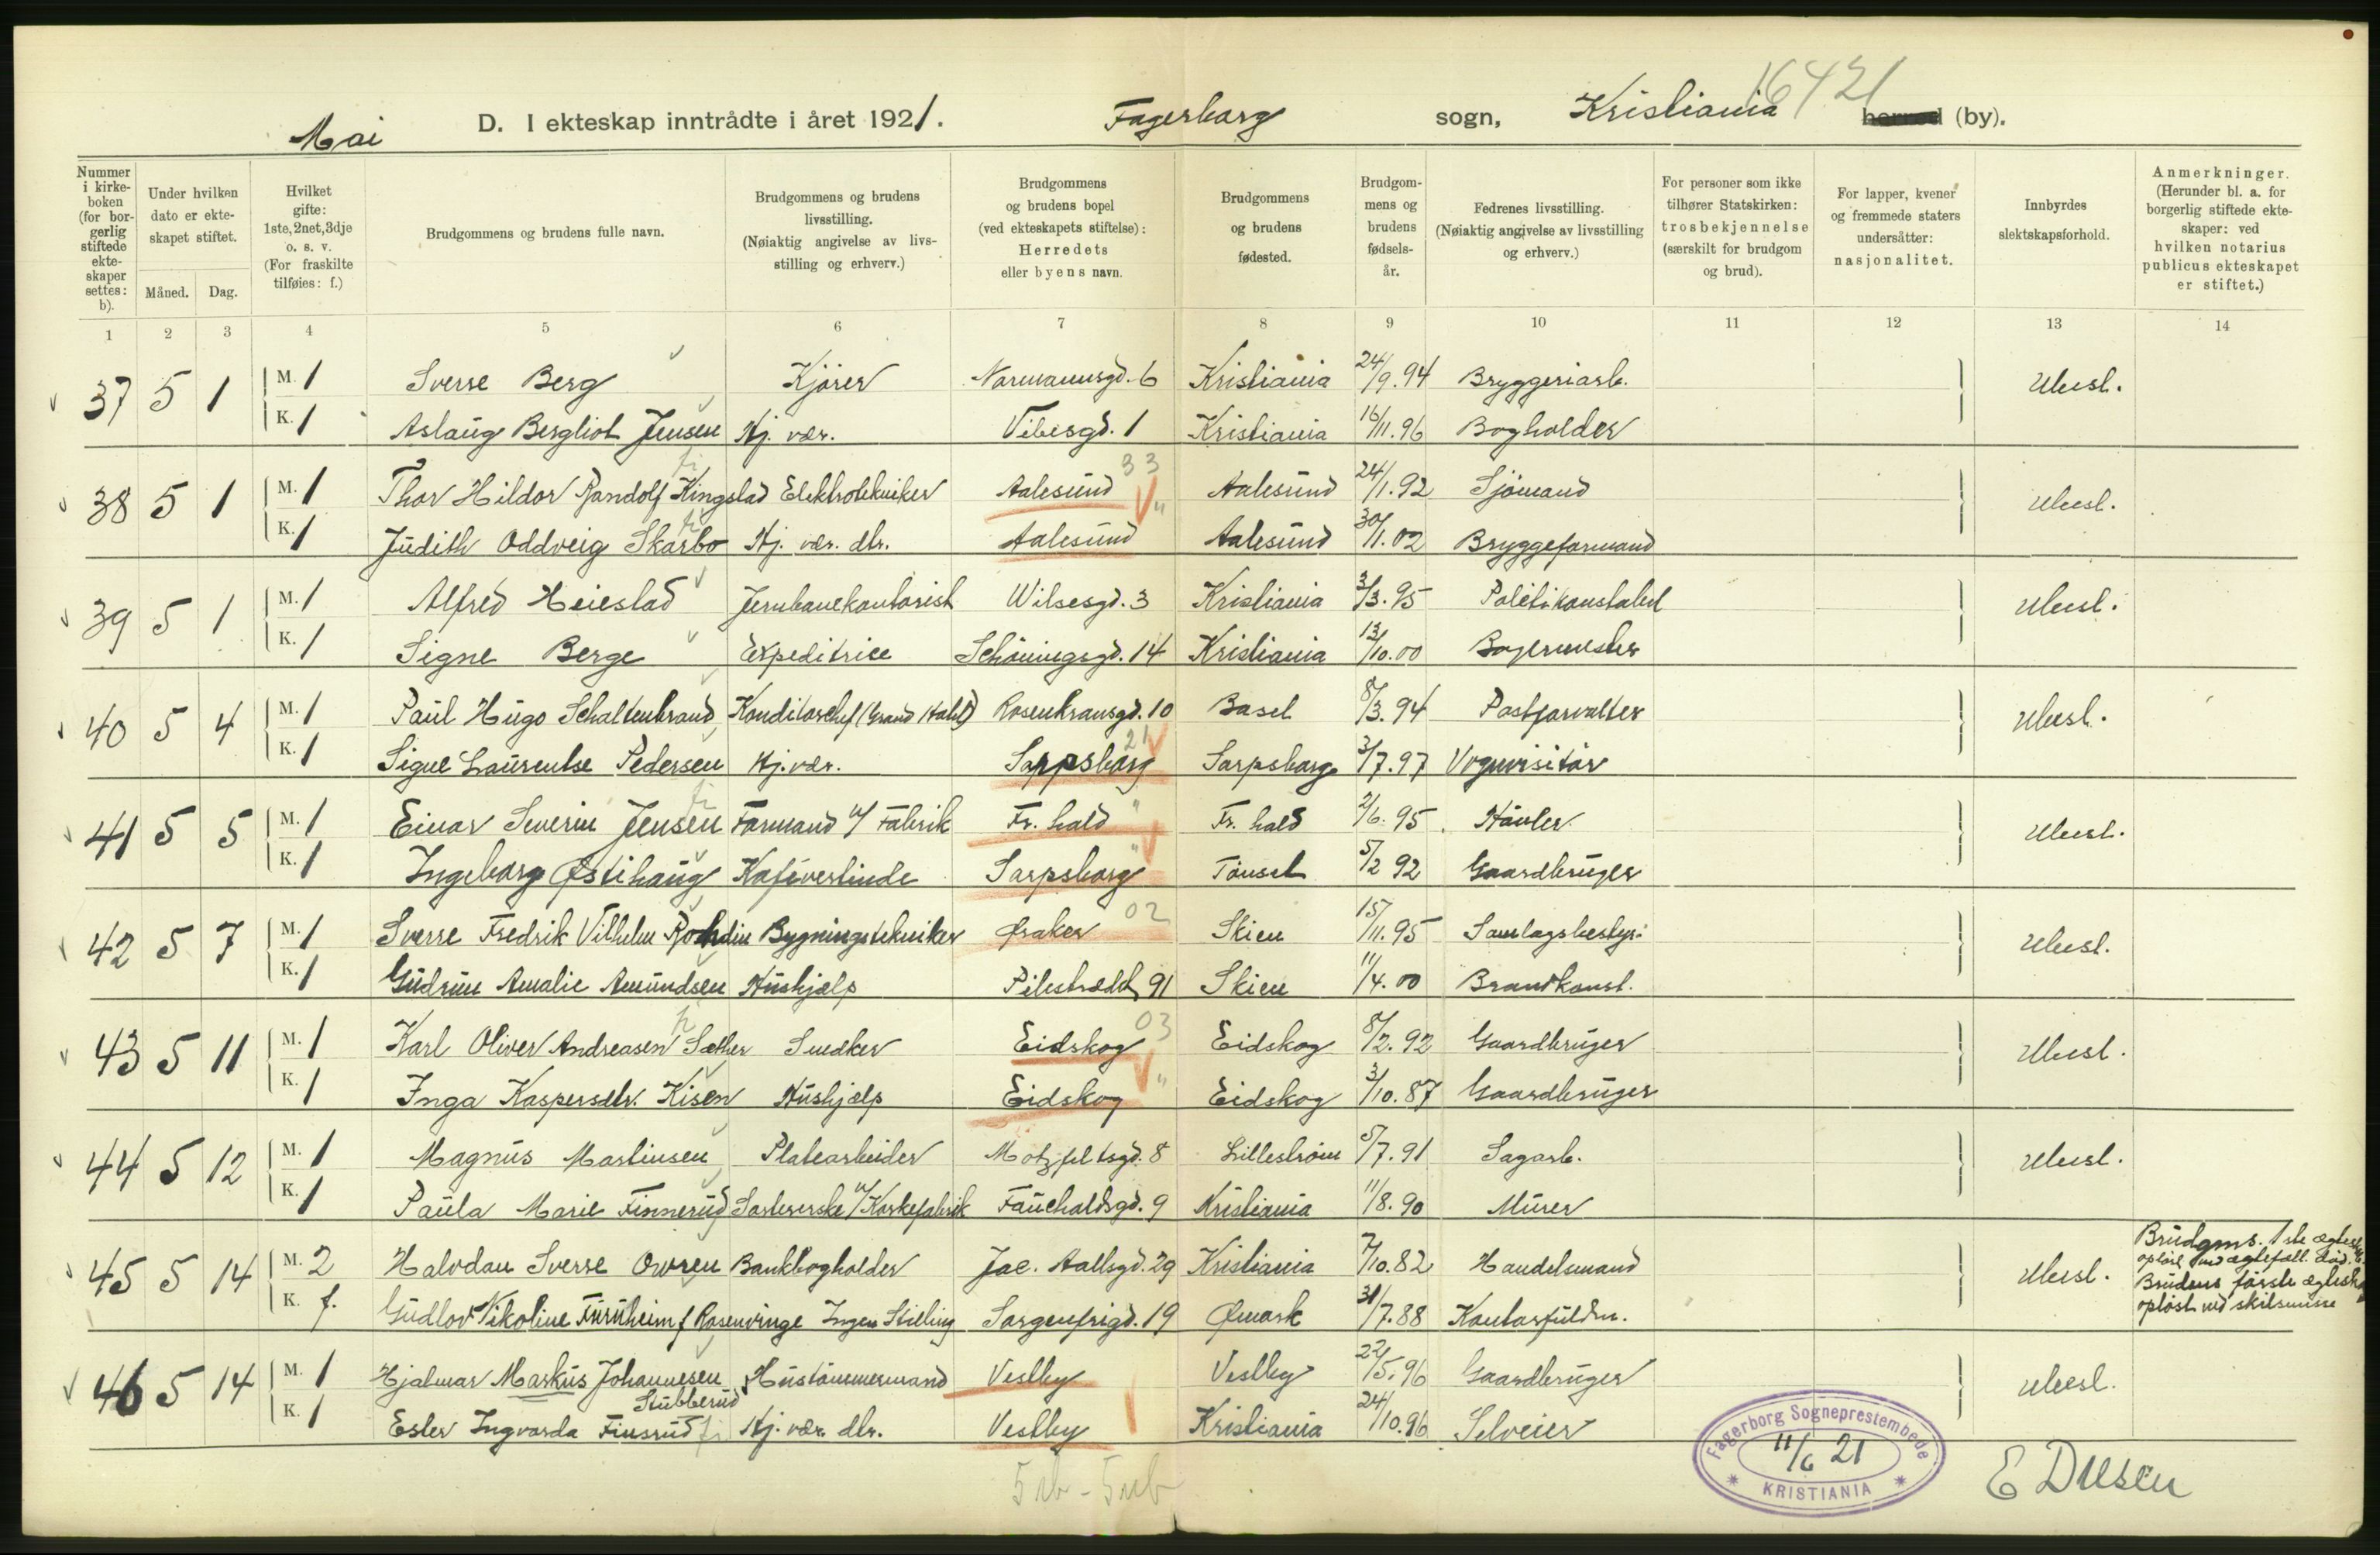 16421
Mai D. I ekteskap inntrådte i året 1921. Fagerborg sogn, Kristiania herred (by).
Nummer i kirke-boken (for bor-gerlig stiftede ekte-skaper settes: b).
Under hvilken dato er ekte-skapet stiftet.
Måned. Dag.
Hvilket gifte: 1ste, 2net, 3dje o. s. v. (For fraskilte tilføies: f.)
Brudgommens og brudens fulle navn.
Brudgommens og brudens livsstilling. (Nøiaktig angivelse av livs-stilling og erhverv.)
Brudgommens og brudens bopel (ved ekteskapets stiftelse): Herredets eller byens navn.
Brudgommens og brudens fødested.
Brudgom-mens og brudens fødsels-år.
Fedrenes livsstilling. (Nøiaktig angivelse av livsstilling og erhverv.)
For personer som ikke tilhører Statskirken: trosbekjennelse (særskilt for brudgom og brud).
For lapper, kvener og fremmede staters undersåtter: nasjonalitet.
Innbyrdes slektskapsforhold.
Anmerkninger. (Herunder bl. a. for borgerlig stiftede ekte-skaper: ved hvilken notarius publicus ekteskapet er stiftet.)
1 2 3 4 5 6 7 8 9 10 11 12 13 14
37 5 1 M. 1 Sverre Berg Kjører Normannsgd. 6 Kristiania 24/9.94 Bryggeriarb. Ubesl.
K. 1 Aslaug Bergliot Jensen Hj. vær. Vibesgd. 1 Kristiania 16/11.96 Bogholder
33
38 5 1 M. 1 Thor Hildor Randolf Kingstad Elektrotekniker Aalesund Aalesund 24/1.92 Sjömand Ubesl.
K. 1 Judith Oddveig Skarbo Hj. vær. dtr. Aalesund Aalesund 30/1.02 Bryggeformand
39 5 1 M. 1 Alfred Heiestad Jernbanekontorist Wilsesgd. 3 Kristiania 3/3.95 Politikonstabel Ubesl.
K. 1 Signe Berge Expeditrice Schöningsgd. 14 Kristiania 13/10.00 Bagermester
40 5 4 M. 1 Paul Hugo Schaltenbrand Konditorchef (Grand Hotel) Rosenkransgd. 10 Basel 8/3.94 Postforvalter Ubesl.
21
K. 1 Signe Laurentse Pedersen Hj. vær. Sarpsborg Sarpsborg 3/7.97 Vognvisitör
41 5 5 M. 1 Einar Severin Jensen Formand v/ Fabrik Fr. hald Fr. hald 2/6.95 Hövler Ubesl.
K. 1 Ingeborg Østihaug Kaféverlinde Sarpsborg Tönset 5/2 92 Gaardbruger
02
42 5 7 M. 1 Sverre Fredrik Vilhelm Rohdin Bygningstekniker Østaker Skien 15/11.95 Samlagsbestyr. Ubesl.
K. 1 Gudrun Amalie Amundsen Hushjælp Pilestrædet 91 Skien 11/4.00 Brandkonst.
03
43 5 11 M. 1 Karl Oliver Andreasen Sæther Snedker Eidskog Eidskog 8/2.92 Gaardbruger Ubesl.
K. 1 Inga Kaspersdtr. Kisen Hushjælp Eidskog Eidskog 3/10.87 Gaardbruger
44 5 12 M. 1 Magnus Martinsen Platearbeider Motzfeltsgd. 8 Lilleström 5/7.91 Sagarb. Ubesl.
K. 1 Paula Marie Finnerud Sorlererske v/ Korkefabrik Fauchaldsgd. 9 Kristiania 11/8.90 Murer
45 5 14 M. 2 Halvdan Sverre Owren Bankbogholder Jac. Aallsgd. 29 Kristiania 7/10.82 Handelsmand Ubesl. Brudgms. 1ste
opløst ved død.
K. f. Gudlov Nikoline Furuheim f. Rosenvinge Ingen Stilling Sorgenfrigd. 19 Ømark 31/7.88 Kontorfuldm. Brudens første
opløst ved skilsmisse
46 5 14 M. 1 Hjalmar Markus Johannesen Stubberud Hustömmermand Vestby Vestby 22/5.96 Gaardbruger Ubesl.
K. 1 Ester Ingvarda Finsrud Hj. vær. dtr. Vestby Kristiania 24/10.96 Selveier
Fagerborg Sogneprestembede
11/6 21
KRISTIANIA